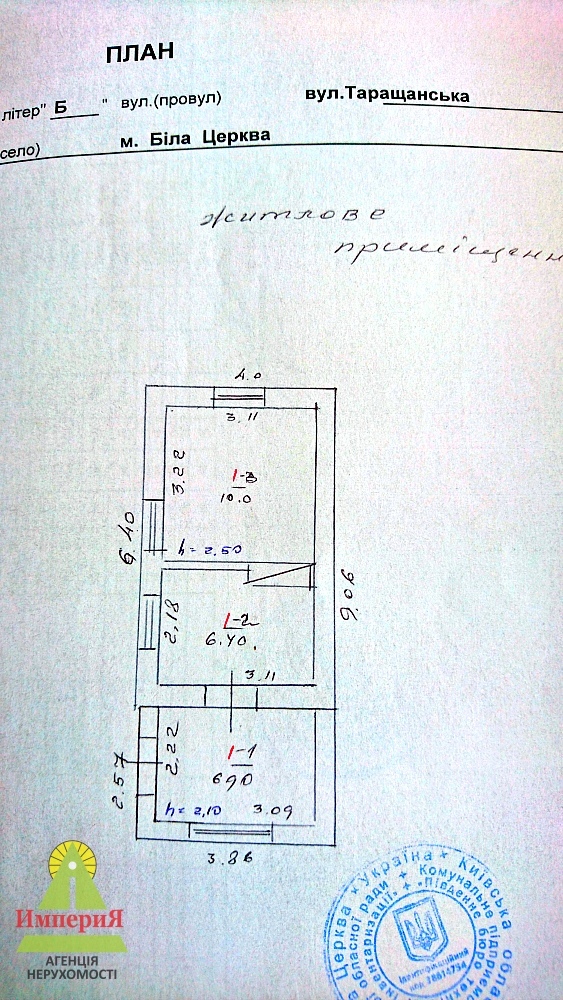 ПЛАН
літер" Б " вул.(провул) вул.Таращанська
село) м. Біла Церква
житлове
приміщенн
4.0
3.11
3.22
1-3
10.0
6.40
h= 2.50
9.06
2,18
1-2
6.40.
3.11
2,22
1-1
6,90
2.57
h= 2,10 3.09
3.86
ИмпериЯ
АГЕНЦІЯ
НЕРУХОМОСТІ
Церква * Україна * Київська обла
обласної ради * Комунальне підприємс
інвентаризації» * «Південне бюро техн
Ідентифікаційний
код 28614754